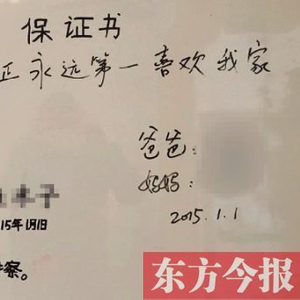 保证书
正永远第一喜欢我家
爸爸:
妈妈:
2015.1.1
15年1月1日
察。
东方今报